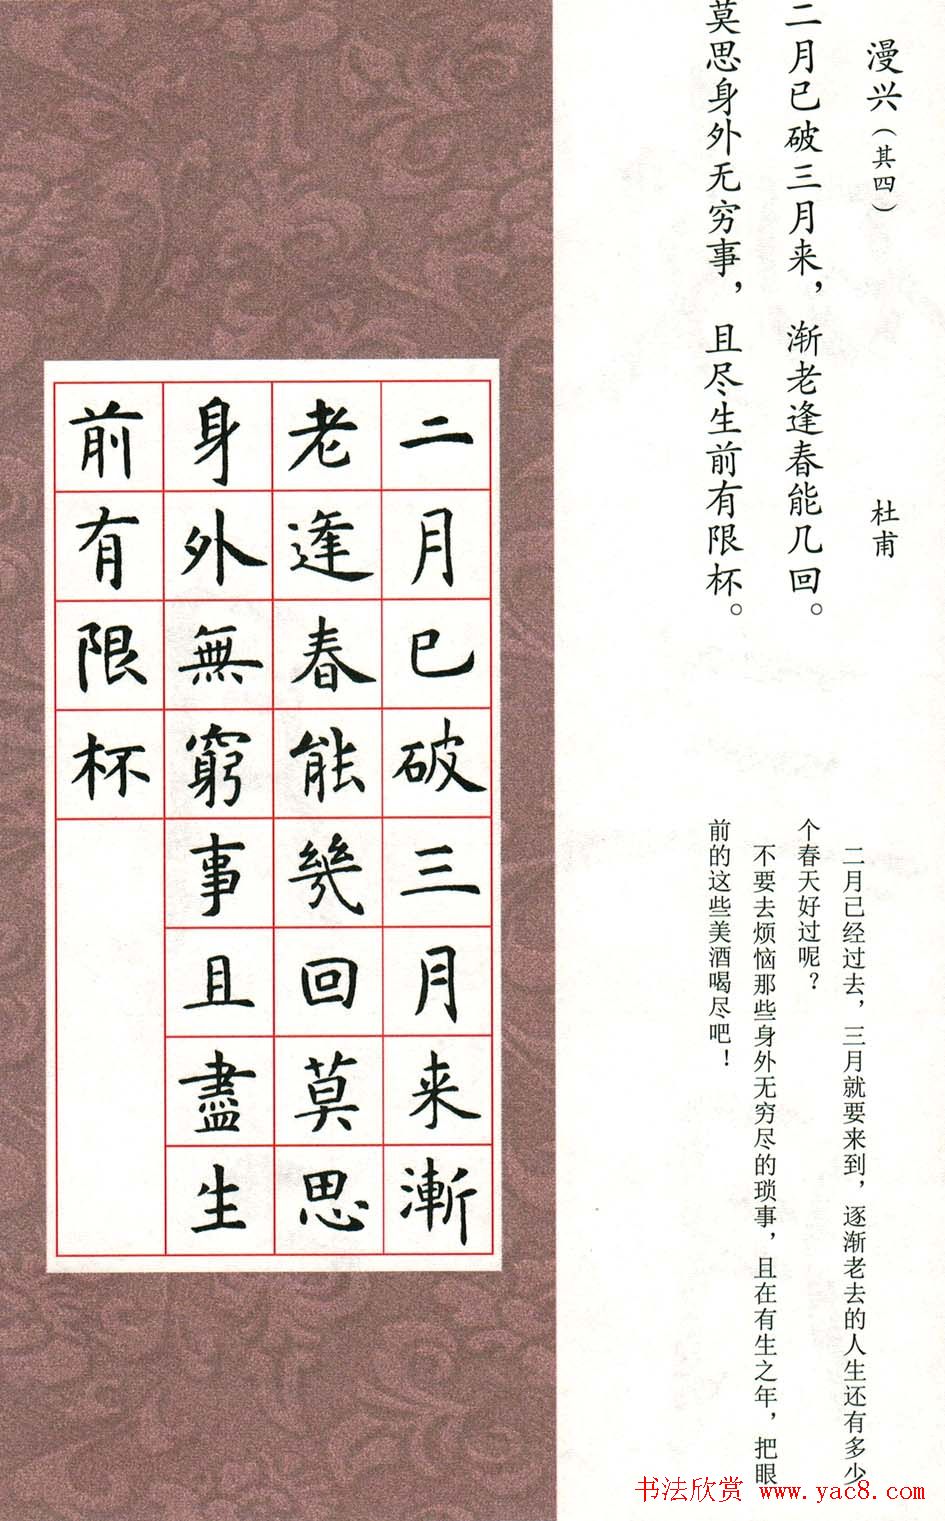 漫兴（其四）
杜甫
二月已破三月来，渐老逢春能几回。
莫思身外无穷事，且尽生前有限杯。
二月已经过去，三月就要来到，逐渐老去的人生还有多少
个春天好过呢？
不要去烦恼那些身外无穷尽的琐事，且在有生之年，把眼
前的这些美酒喝尽吧！
二月已破三月来漸
老逢春能幾回莫思
身外無窮事且盡生
前有限杯
书法欣赏 www.yac8.com